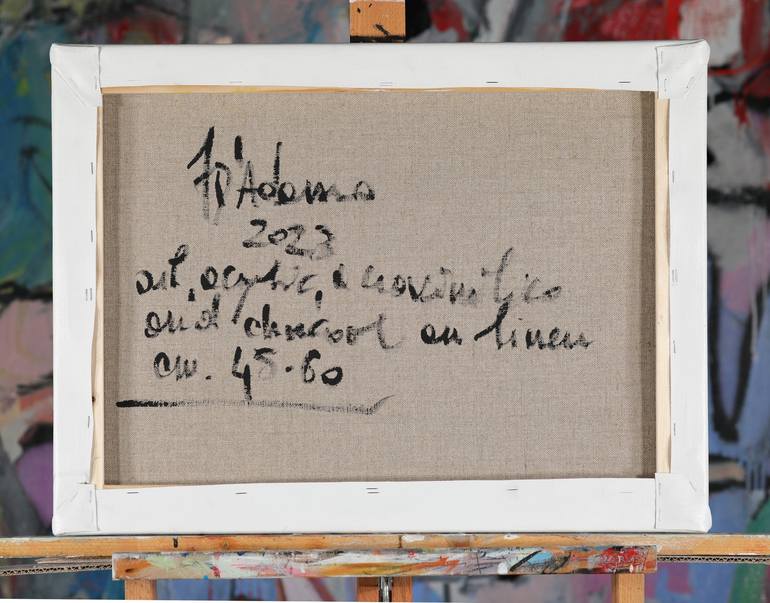 D'Adamo
2023
oil, acrylic,
and charcoal on linen
cm. 45·60